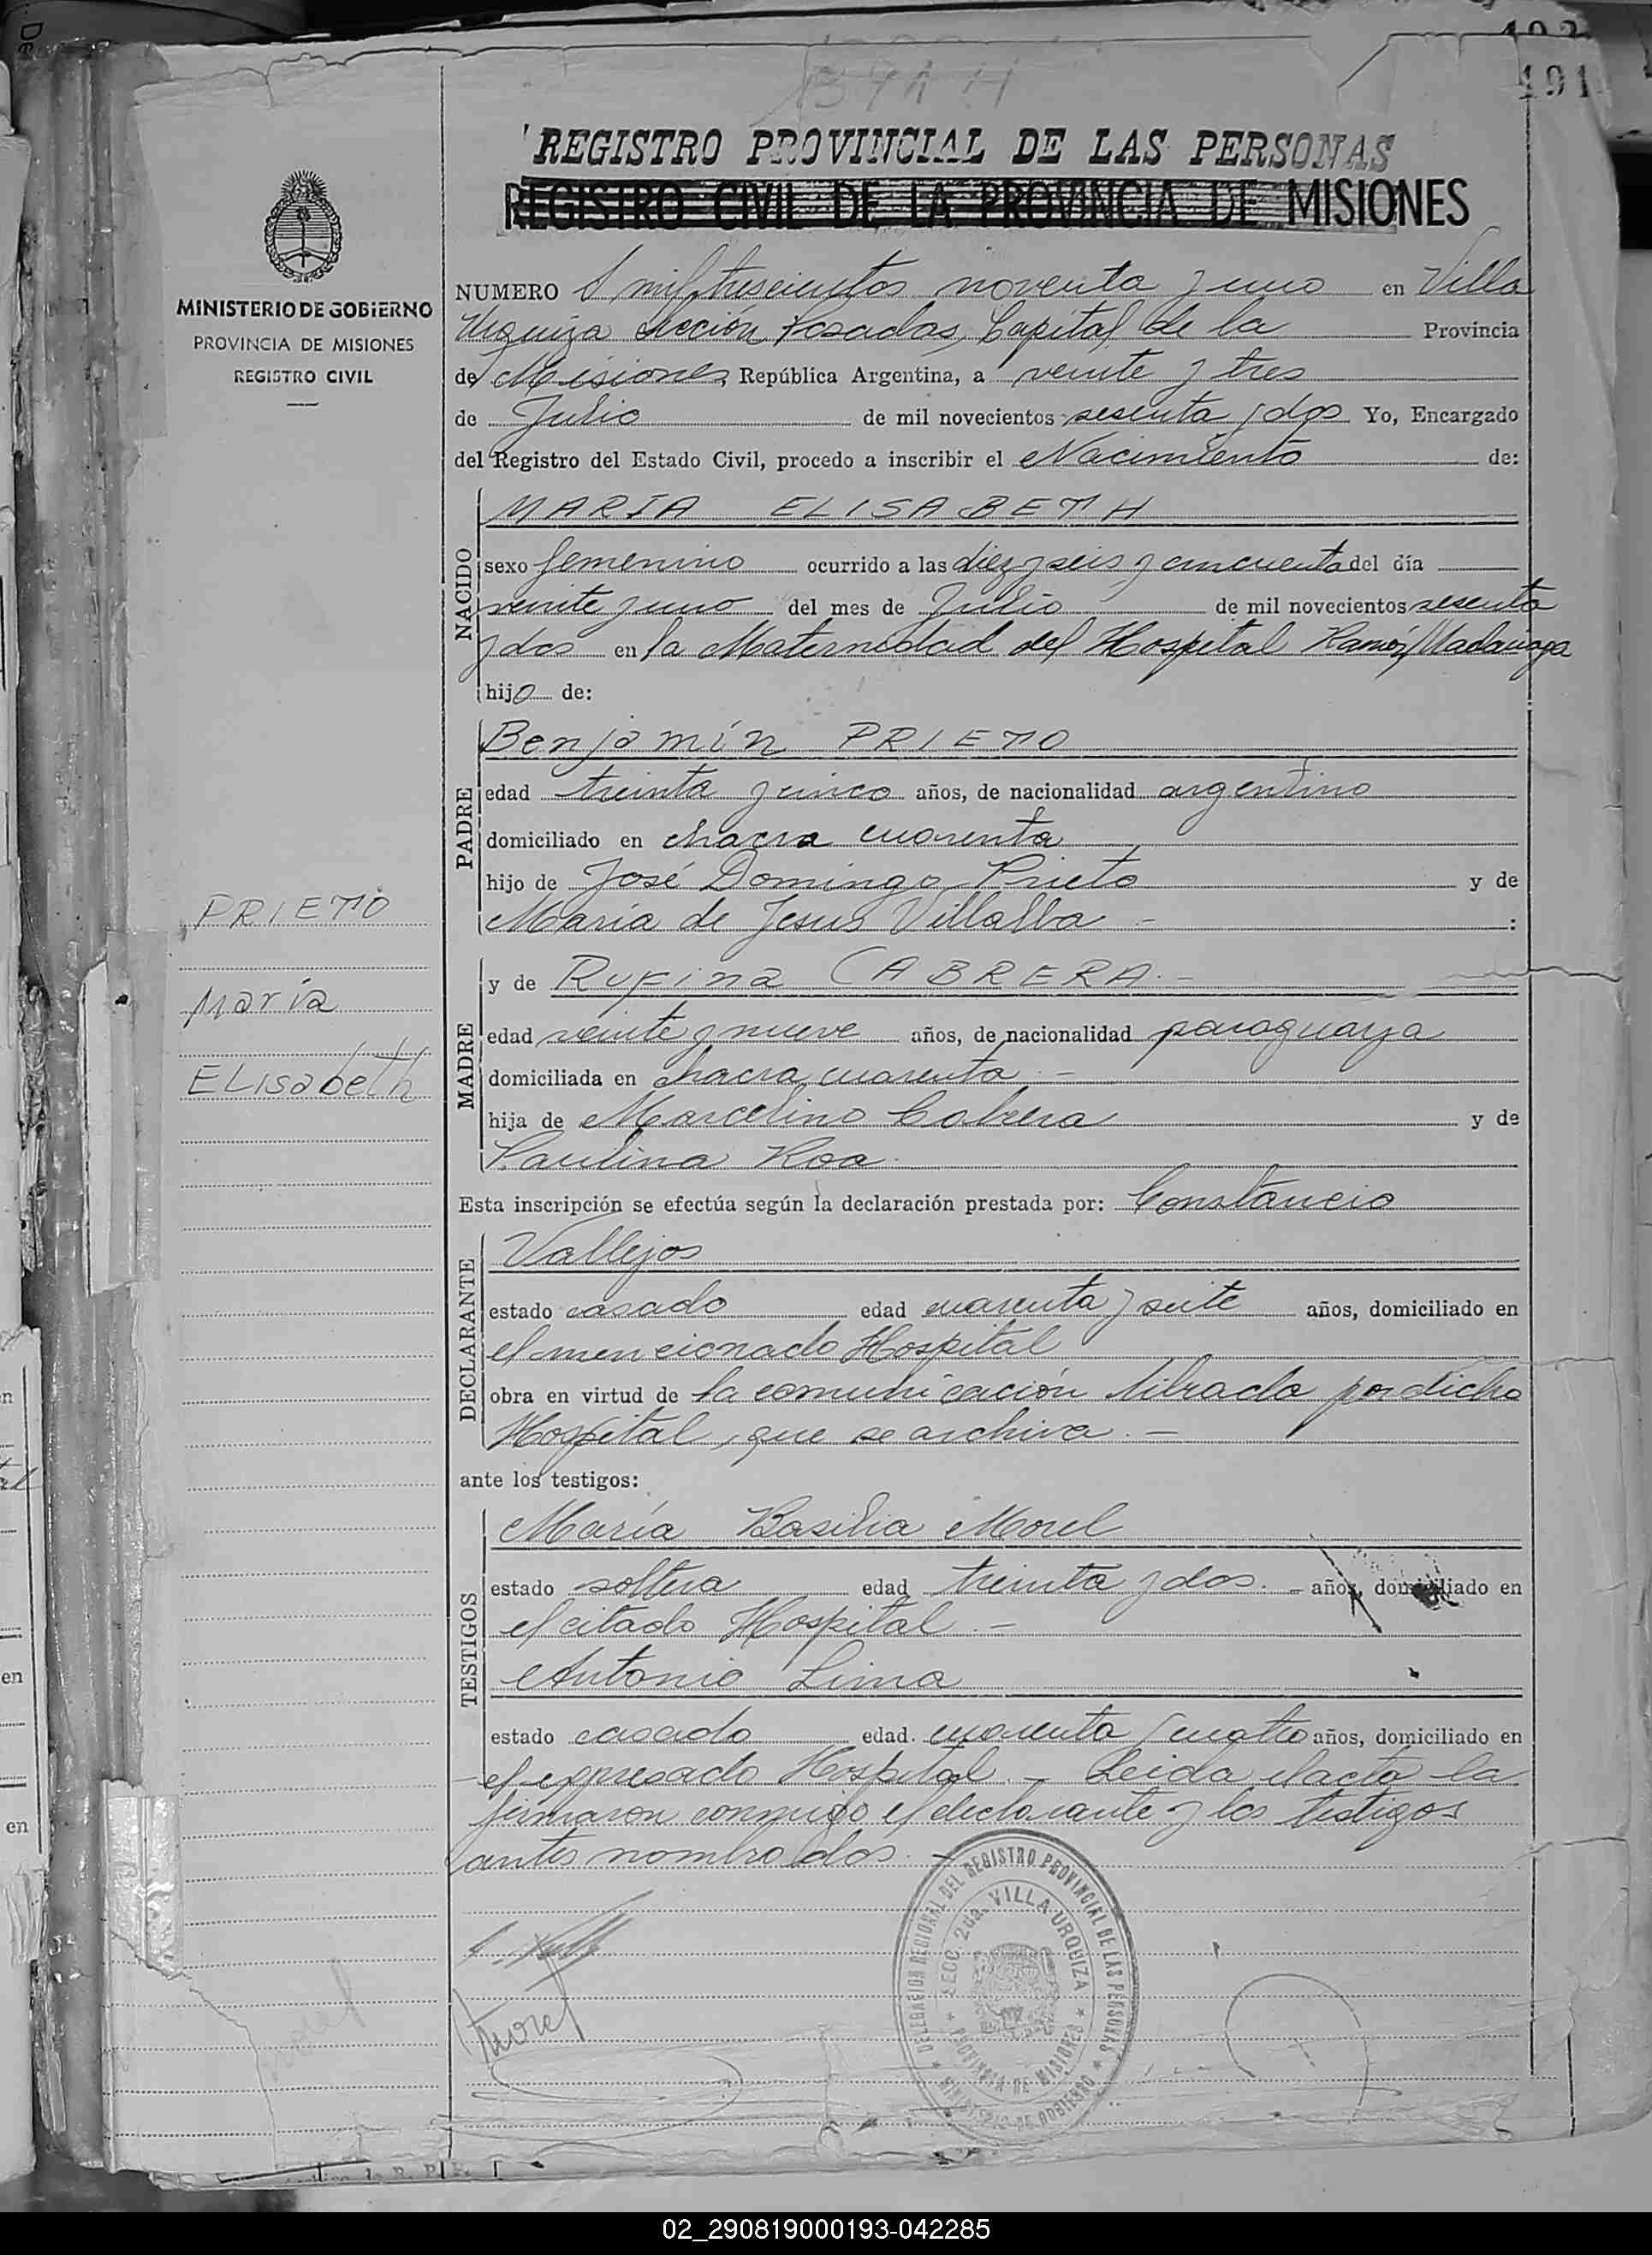 191
1391 H
REGISTRO PROVINCIAL DE LAS PERSONAS
REGISTRO CIVIL DE LA PROVINCIA DE MISIONES
MINISTERIO DE GOBIERNO
PROVINCIA DE MISIONES
REGISTRO CIVIL
NUMERO mil trescientos noventa y uno en Villa
Urquiza Sección Posadas, Capital de la Provincia
de Misiones República Argentina, a veinte y tres
de Julio de mil novecientos sesenta y dos Yo, Encargado
del Registro del Estado Civil, procedo a inscribir el Nacimiento de:
NACIDO
MARIA ELISABETH
sexo femenino ocurrido a las diez y seis y cincuenta del día
veinte y uno del mes de Julio de mil novecientos sesenta
y dos en la Maternidad del Hospital Ramón Madariaga
hija de:
PADRE
Benjamín PRIETO
edad treinta y cinco años, de nacionalidad argentino
domiciliado en chacra cuarenta
hijo de José Domingo Prieto y de
María de Jesus Villalba
PRIETO
María
ELisabeth
MADRE
y de Rufina CABRERA.
edad veinte y nueve años, de nacionalidad paraguaya
domiciliada en chacra cuarenta
hija de Marcelino Cabrera y de
Paulina Roa.
Esta inscripción se efectúa según la declaración prestada por: Constancio
DECLARANTE
Vallejos
estado casado edad cuarenta y siete años, domiciliado en
el mencionado Hospital
obra en virtud de la comunicación librada por dicho
Hospital, que se archiva.
ante los testigos:
TESTIGOS
María Basilia Morel
estado soltera edad treinta y dos. años, domiciliado en
el citado Hospital.
Antonio Lima
estado casado edad. cuarenta y cuatro años, domiciliado en
el expresado Hospital. Leida el acta la
firmaron conmigo el declarante y los testigos
antes nombrados.
Morel
DELEGACION REGIONAL DEL REGISTRO PROVINCIAL DE LAS PERSONAS
MINISTERIO DE GOBIERNO
SECC. 2da. VILLA URQUIZA
PROVINCIA DE MISIONES
02_290819000193-042285